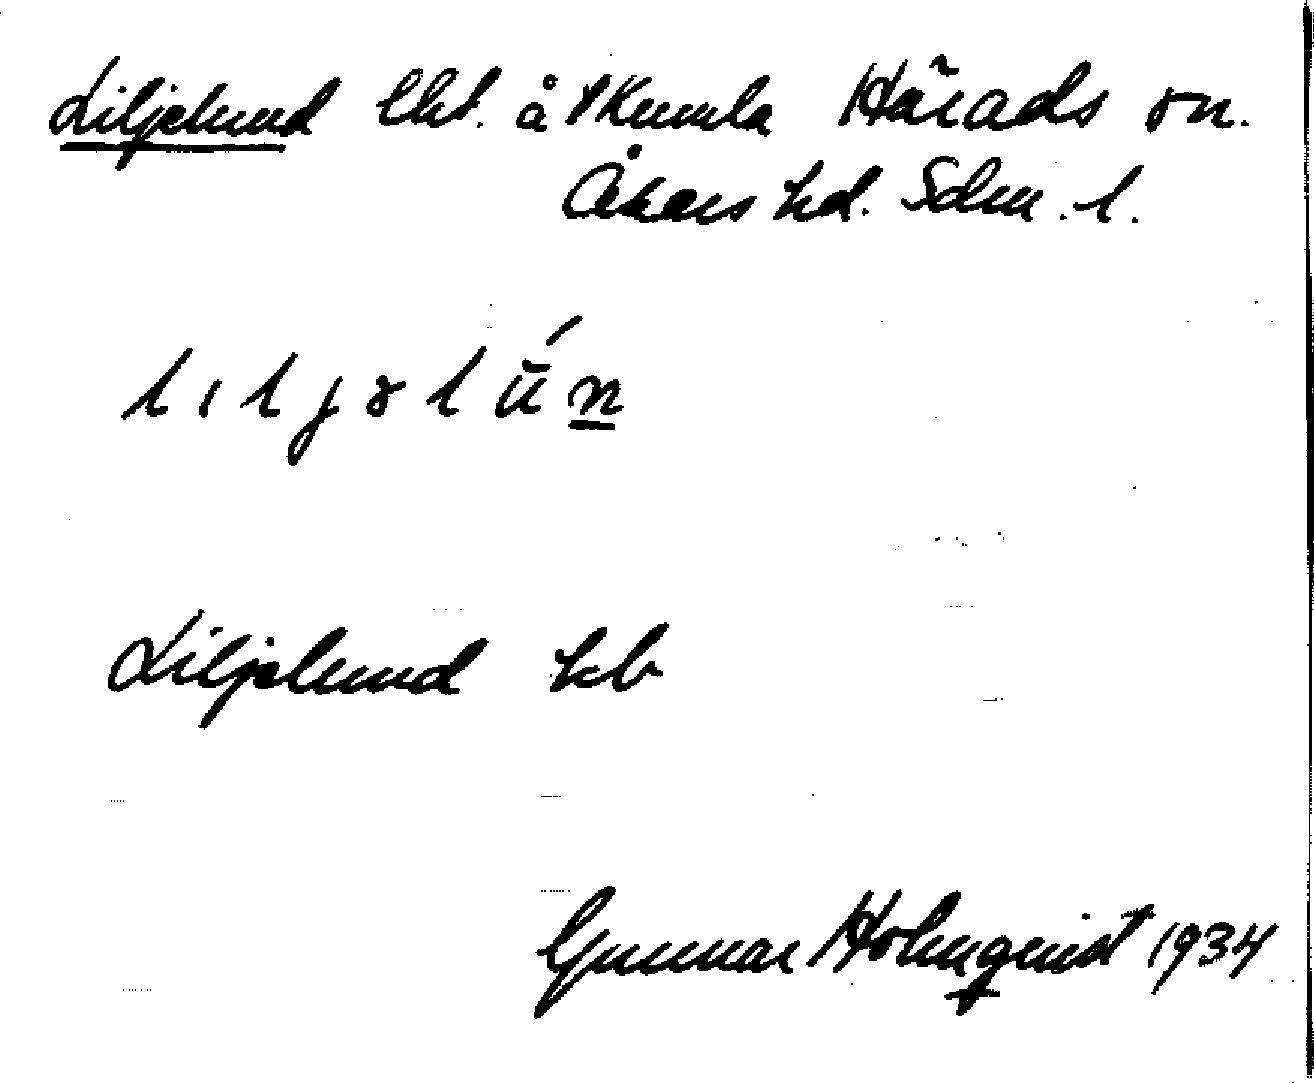 Liljelund lht. å Kumla Härads sn.
Åkers hd. Sdm. l.
liljəlún
Liljelund kb
Gunnar Holmqvist 1934